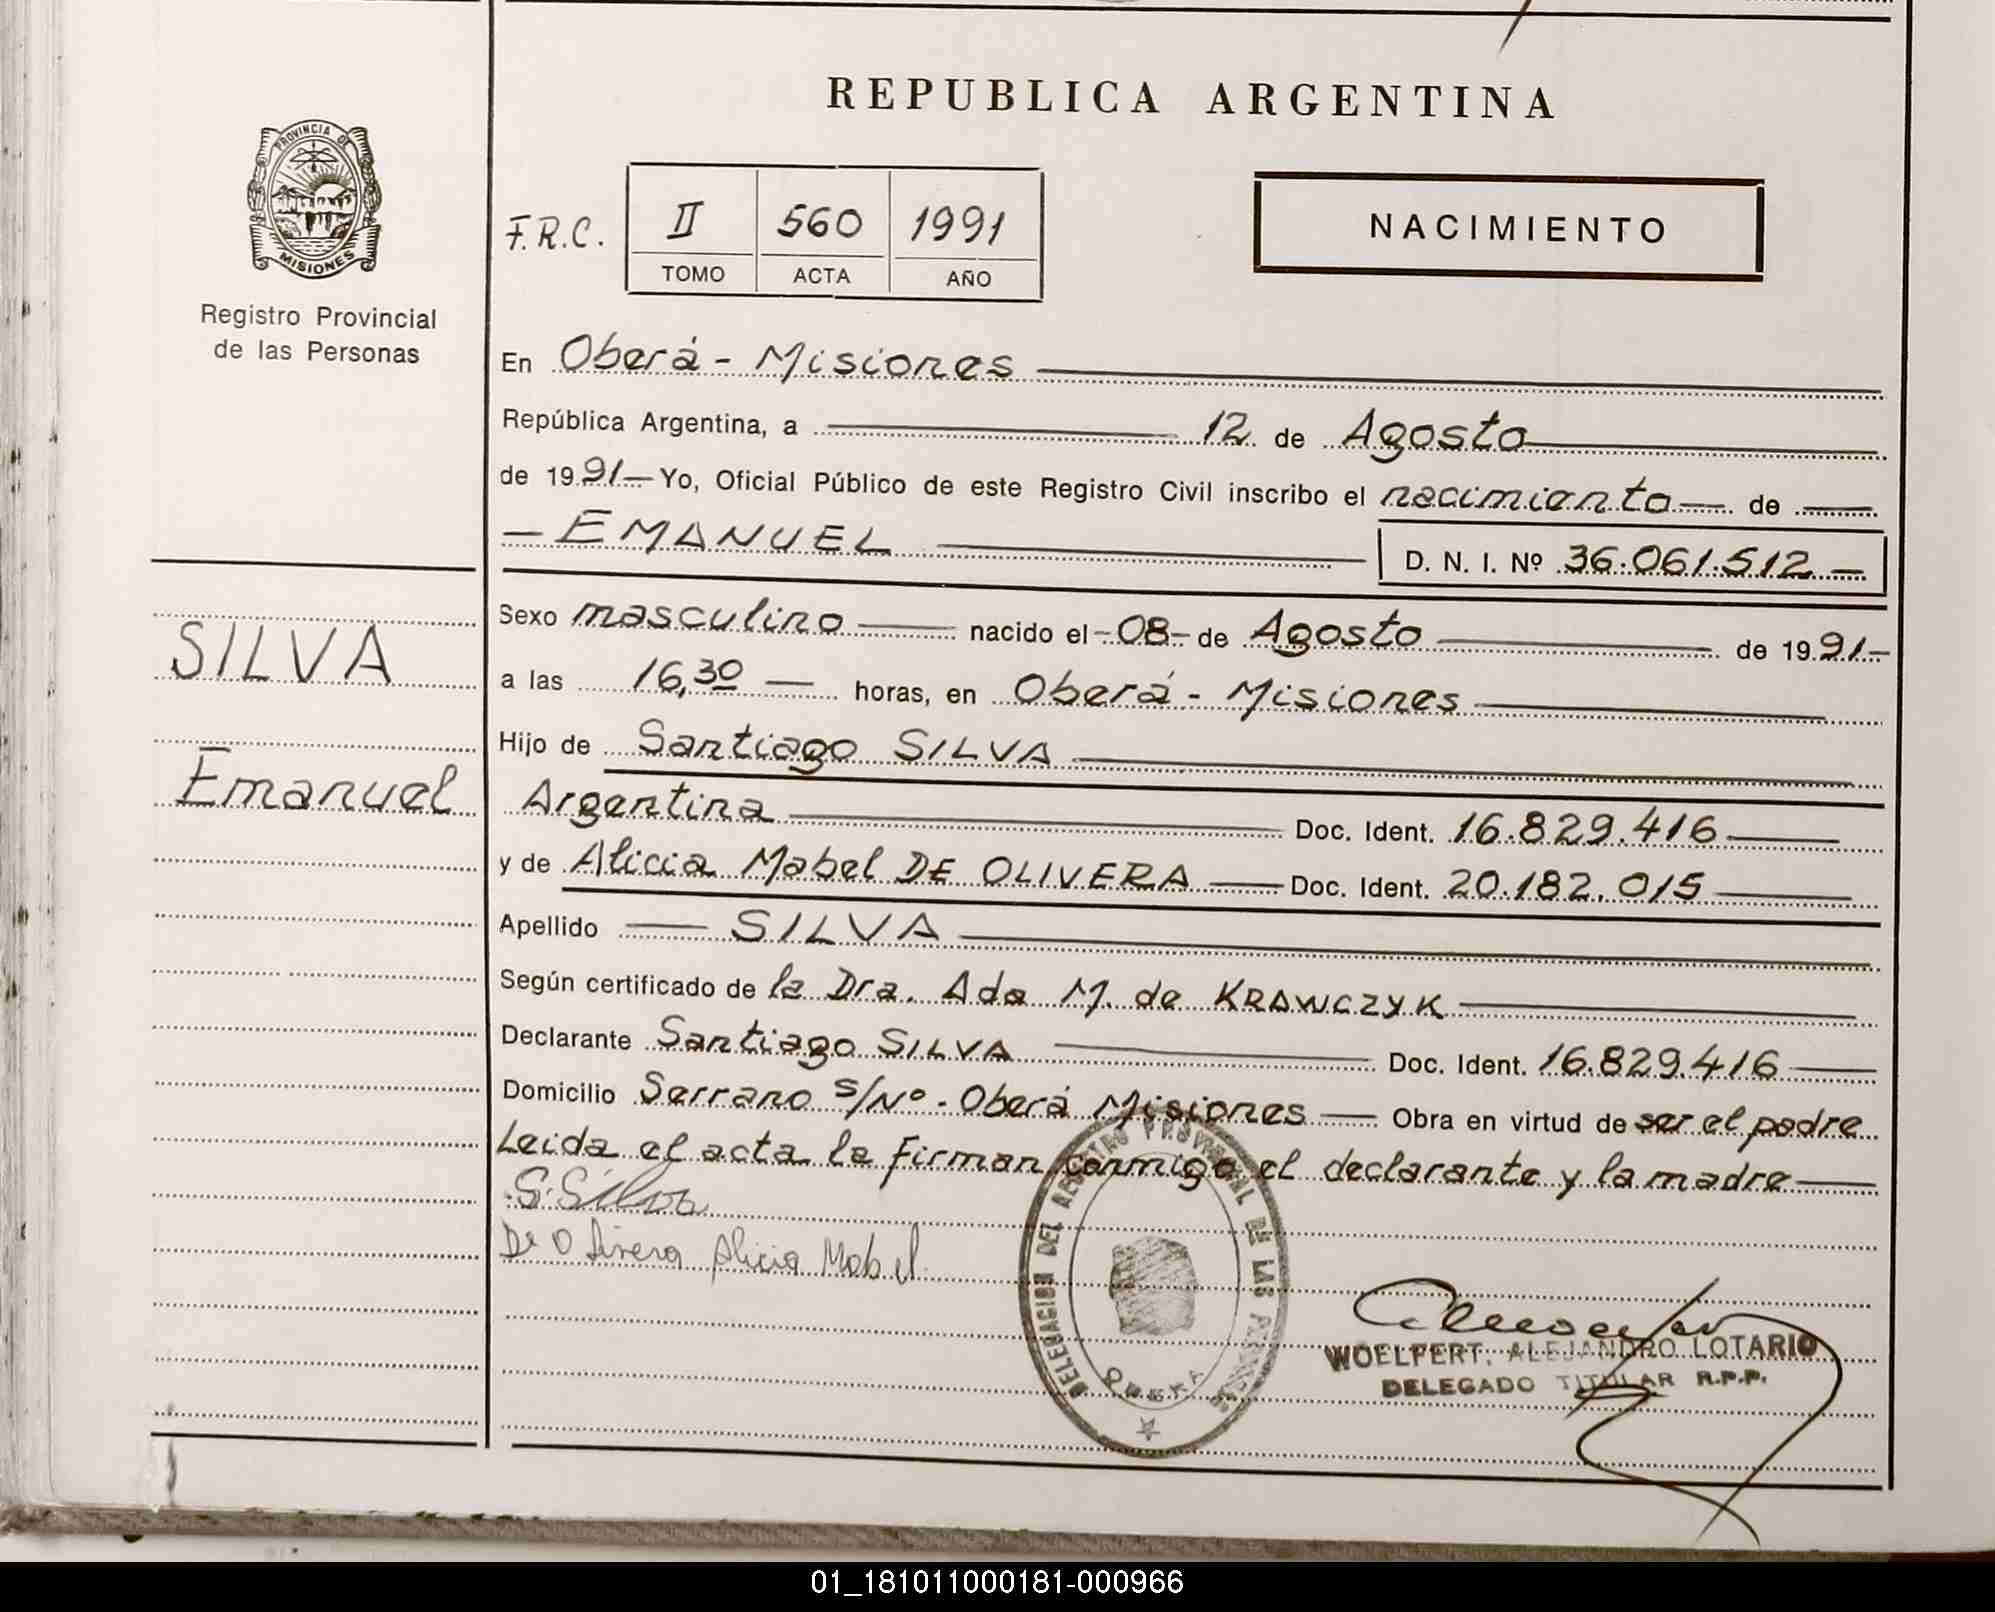 REPUBLICA ARGENTINA
PROVINCIA DE
MISIONES
Registro Provincial
de las Personas
F.R.C. II 560 1991
TOMO ACTA AÑO
NACIMIENTO
En Oberá - Misiones
República Argentina, a 12 de Agosto
de 1991 Yo, Oficial Público de este Registro Civil inscribo el nacimiento de
EMANUEL D. N. I. Nº 36.061.512
SILVA
Emanuel
Sexo masculino nacido el 08 de Agosto de 1991
a las 16,30 horas, en Oberá - Misiones
Hijo de Santiago SILVA
Argentina Doc. Ident. 16.829.416
y de Alicia Mabel DE OLIVERA Doc. Ident. 20.182.015
Apellido SILVA
Según certificado de la Dra. Ada M. de KRAWCZYK
Declarante Santiago SILVA Doc. Ident. 16.829.416
Domicilio Serrano s/Nº - Oberá Misiones Obra en virtud de ser el padre
Leida el acta la firman conmigo el declarante y la madre
S. Silva
De Olivera Alicia Mabel
DELEGACION DEL REGISTRO PROVINCIAL DE LAS PERSONAS
OBERA
WOELFERT, ALEJANDRO LOTARIO
DELEGADO TITULAR R.P.P.
01_181011000181-000966